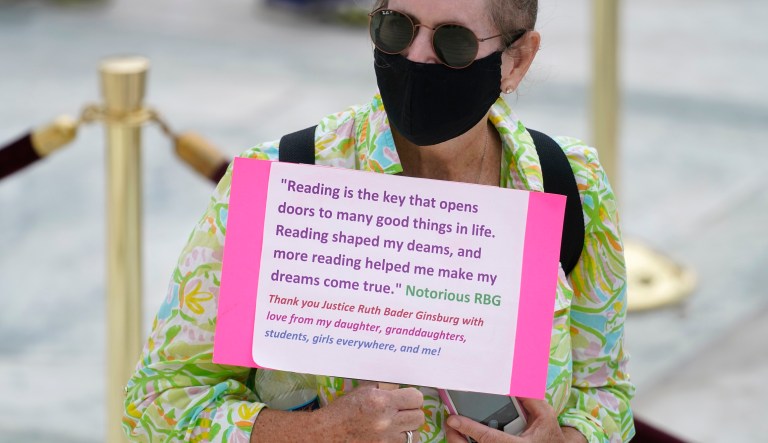 "Reading is the key that opens
doors to many good things in life.
Reading shaped my deams, and
more reading helped me make my
dreams come true." Notorious RBG
Thank you Justice Ruth Bader Ginsburg with
love from my daughter, granddaughters,
students, girls everywhere, and me!